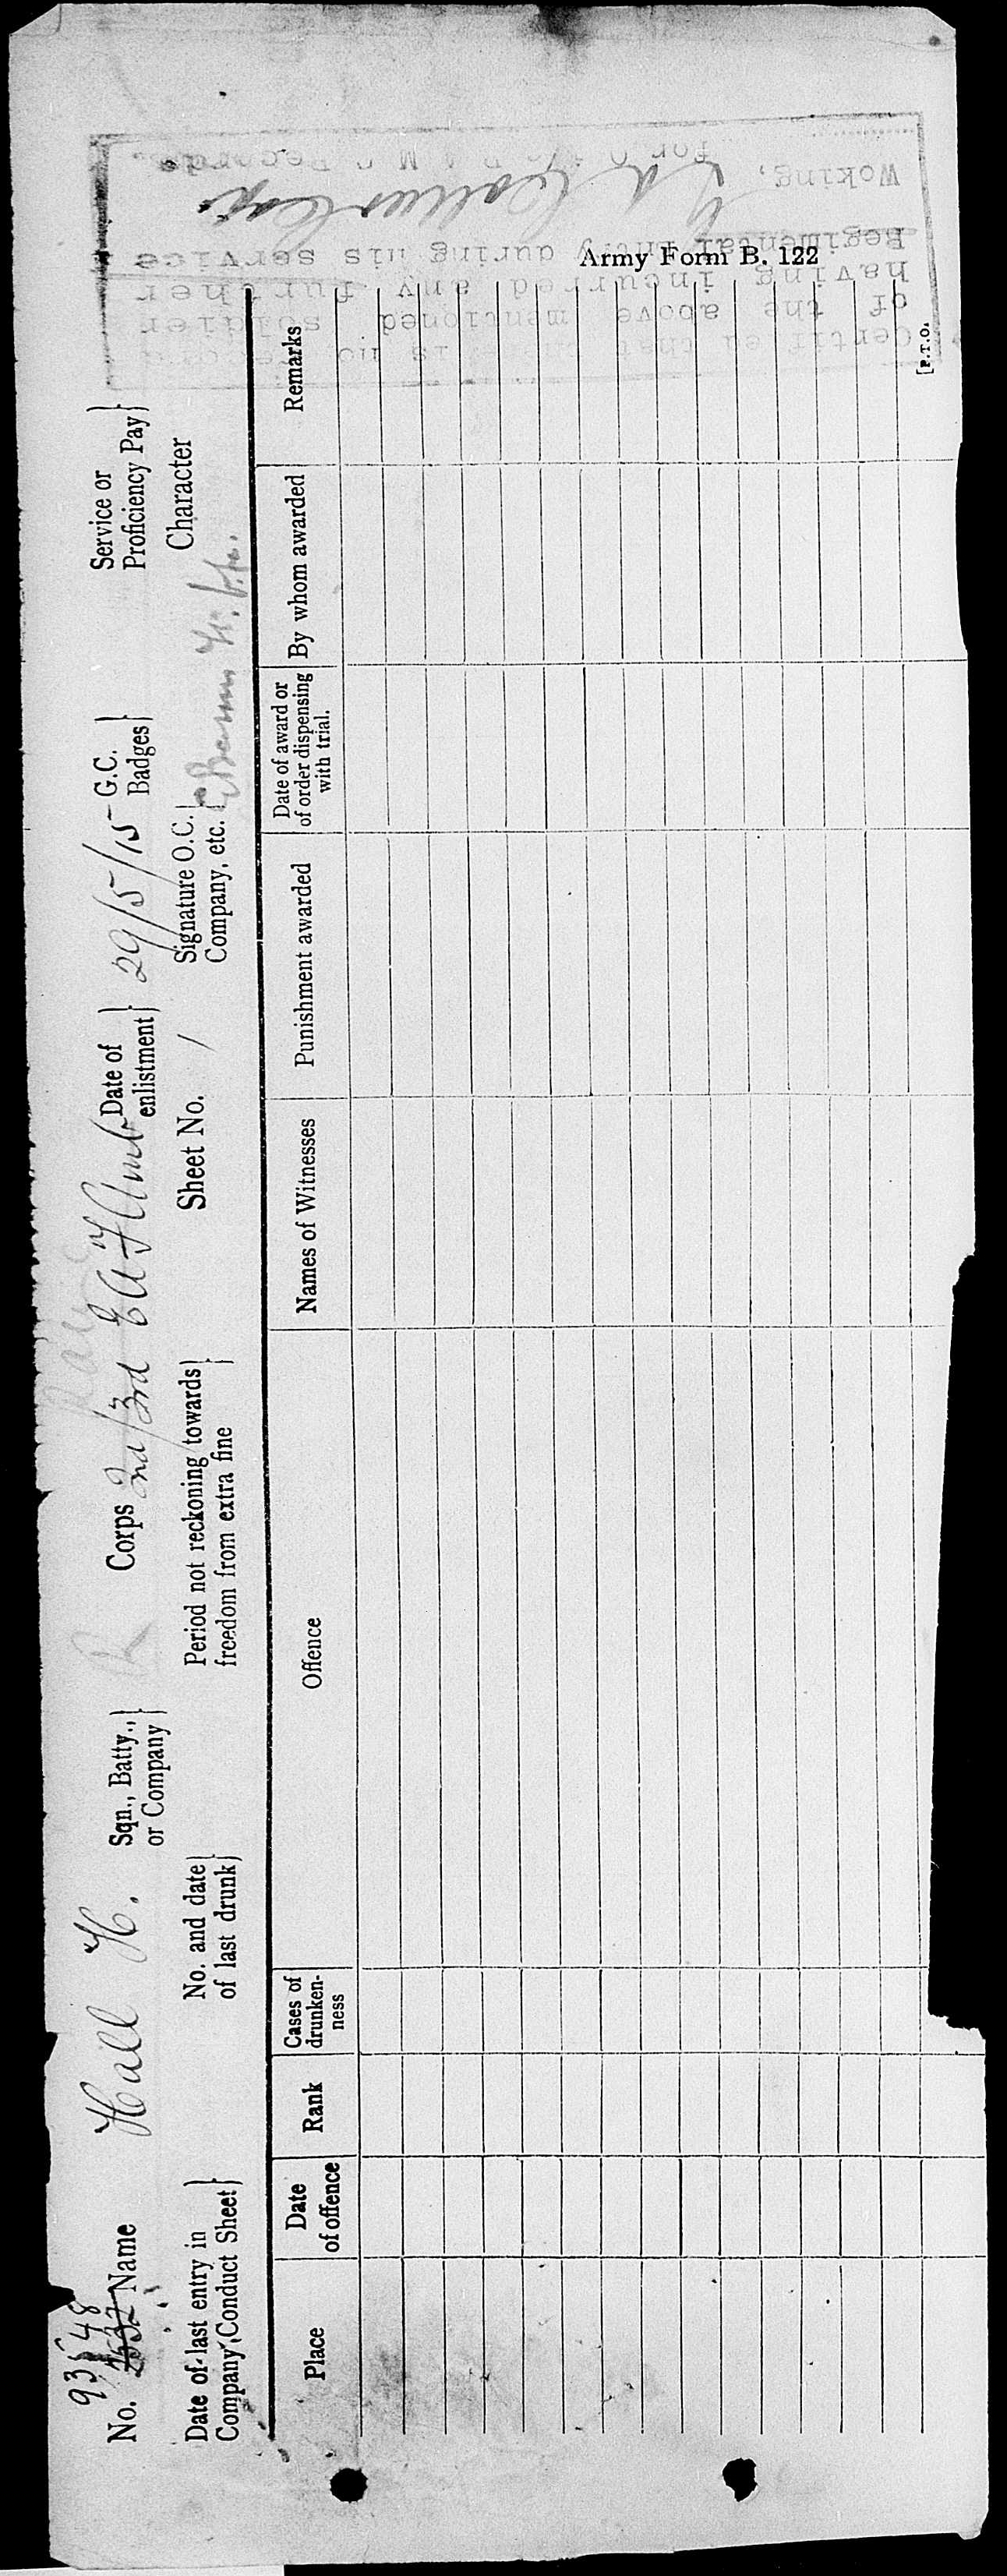 Army Form B. 122
No. 93548 2532 Name Hall H. Sqn., Batty., or Company Corps 2nd/3rd E A F Amb Date of enlistment 29/5/15 G.C. Badges Service or Proficiency Pay
Date of last entry in Company Conduct Sheet No. and date of last drunk Period not reckoning towards freedom from extra fine Sheet No. 1 Signature O.C. Company, etc. Character
Place Date of offence Rank Cases of drunken-ness Offence Names of Witnesses Punishment awarded Date of award or of order dispensing with trial. By whom awarded Remarks
[P.T.O.
Certified that is no
of the above mentioned soldier
having incurred any further
Regimental Entry during his service
Woking,
for O i/c R A M C Records.